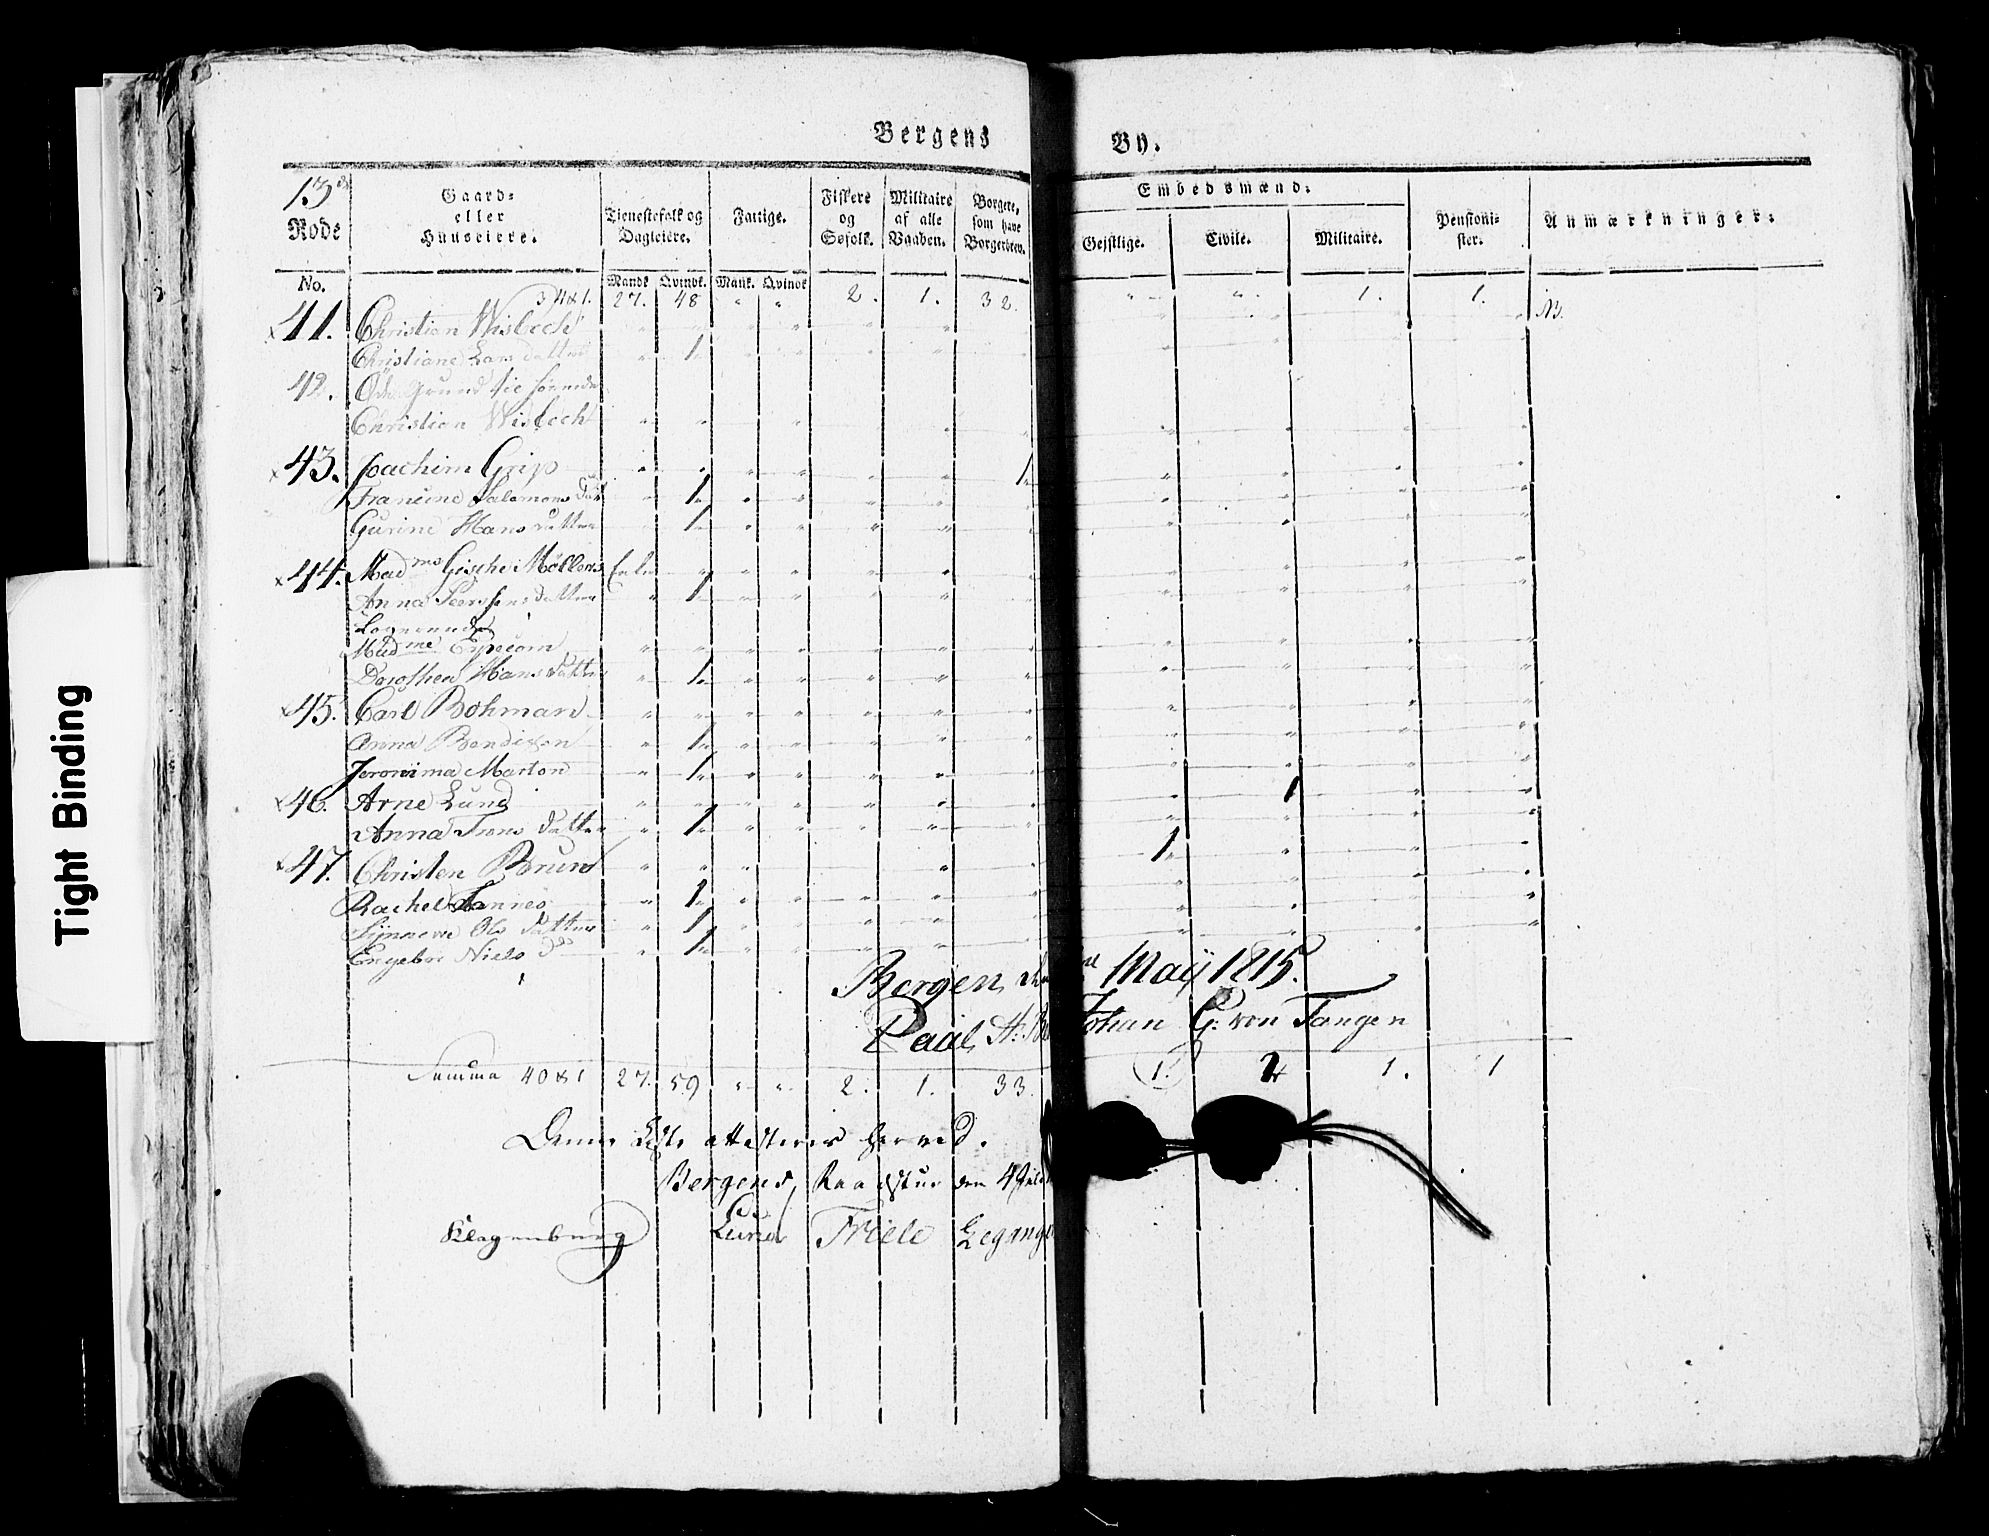 Tight Binding
Bergens By.
13de Rode
No.
Gaard- eller Huuseiere.
Tienestefolk og Dagleiere.
Mandk. Qvindk.
Fattige.
Mank. Qvindk
Fiskere og Søfolk.
Militaire af alle Vaaben.
Borgere, som have Borgerbrev.
Embedsmænd:
Gejstlige.
Civile.
Militaire.
Pensionister.
Anmærkninger:
27. 48 " " 2. 1. 32. " " 1. 1.
41. Christian Wisbech
Christiane Lars datter 1
42. Øde Grund
Christian Wisbech
43. Joachim Grip 1
Francine Salamons 1
Gurine Hans datter 1
44. Madme Gische Møllers Enke
Anna datter 1
Logerende
Madme
Dorothea Hans datter 1
45. Carl Bohman
Anna Bendixen 1
Jeronima Marton 1
46. Arne Lund 1
Anna Trons datter 1
47. Christen Bruun 1
Rachel Fannes 1
Synneve Ols datter 1
Engebor Niels do 1
Bergen May 1815.
Paal H: Johan G: von Tangen
Summa 40 & 1 27. 59 " " 2. 1. 33. 1. 1. 1
Denne Liste attesteres herved.
Bergens Raadstue den 4
Klagenberg Lund Friele